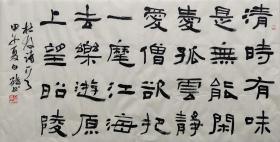 清時有味
是無能閒
愛孤雲靜
愛僧欲把
一麾江海
去樂遊原
上望昭陵
杜牧诗
甲午夏白